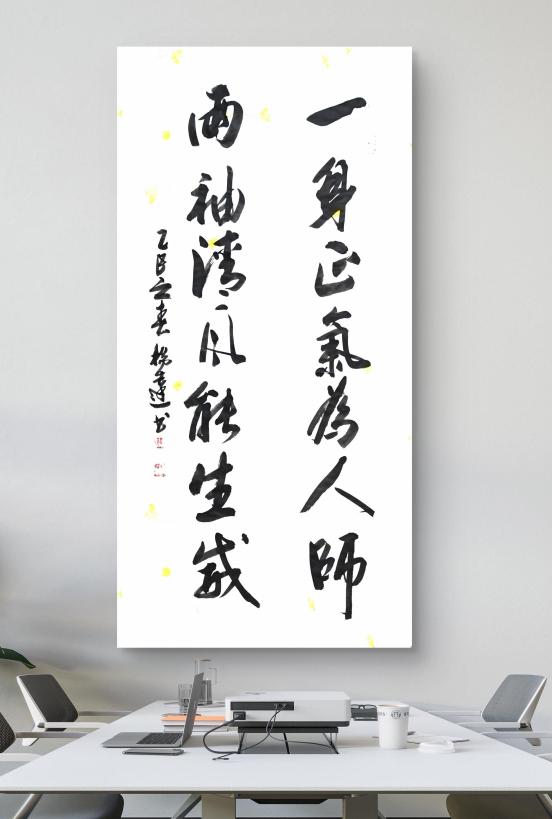 一身正氣為人師
兩袖清風能生威
乙巳之春 楊書